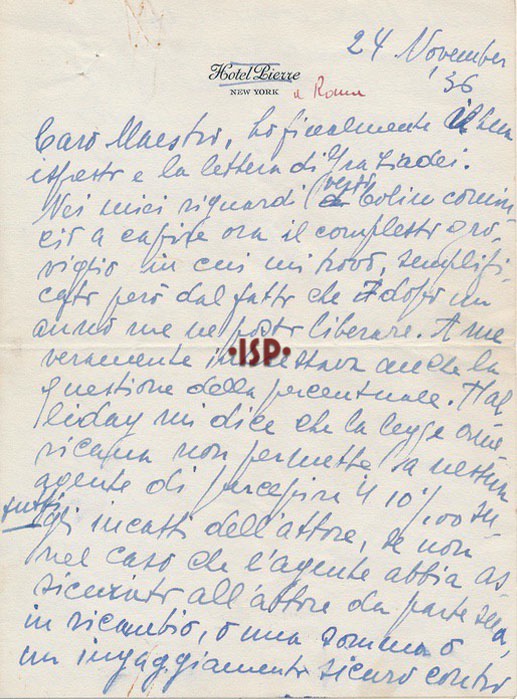 24 November
'36
Hotel Pierre
NEW YORK
a Roma
Caro Maestro, ho finalmente il suo
e la lettera di Graziadei.
Nei miei riguardi Colin comin
ciò a capire ora il complesso gro,
viglio in cui mi trovo, semplifi,
cato però dal fatto che dopo un
anno me ne posso liberare. A me
veramente interessava anche la
questione della percentuale. Hal
liday mi dice che la legge ame
ricana non permette a nessun
agente di percepire il 10%00 su
tutti
gli incassi dell'attore, se non
nel caso che l'agente abbia as
sicurato all'attore da parte sua,
in ricambio, o una somma o
un ingaggiamento sicuro contro
•ISP•